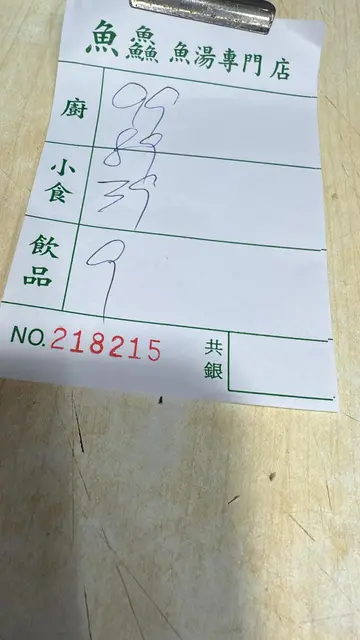 魚鱻 魚湯專門店
廚 99
89
小食 39
飲品 9
NO.218215 共銀